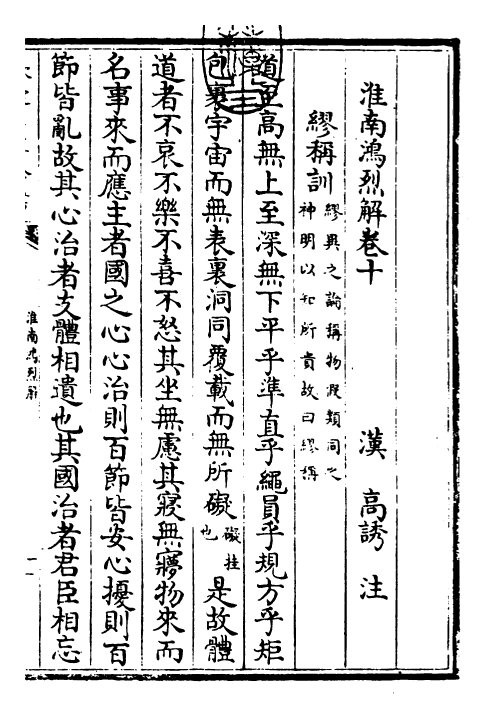 淮南鴻烈解卷十
漢 高誘 注
繆稱訓 繆異之論稱物假類同之
神明以知所貴故曰繆稱
道至高無上至深無下平乎準直乎繩員乎規方乎矩
包裹宇宙而無表裏洞同覆載而無所礙 礙挂
也 是故體
道者不哀不樂不喜不怒其坐無慮其寢無夢物來而
名事來而應主者國之心心治則百節皆安心擾則百
節皆亂故其心治者支體相遺也其國治者君臣相忘
淮南鴻烈解
一